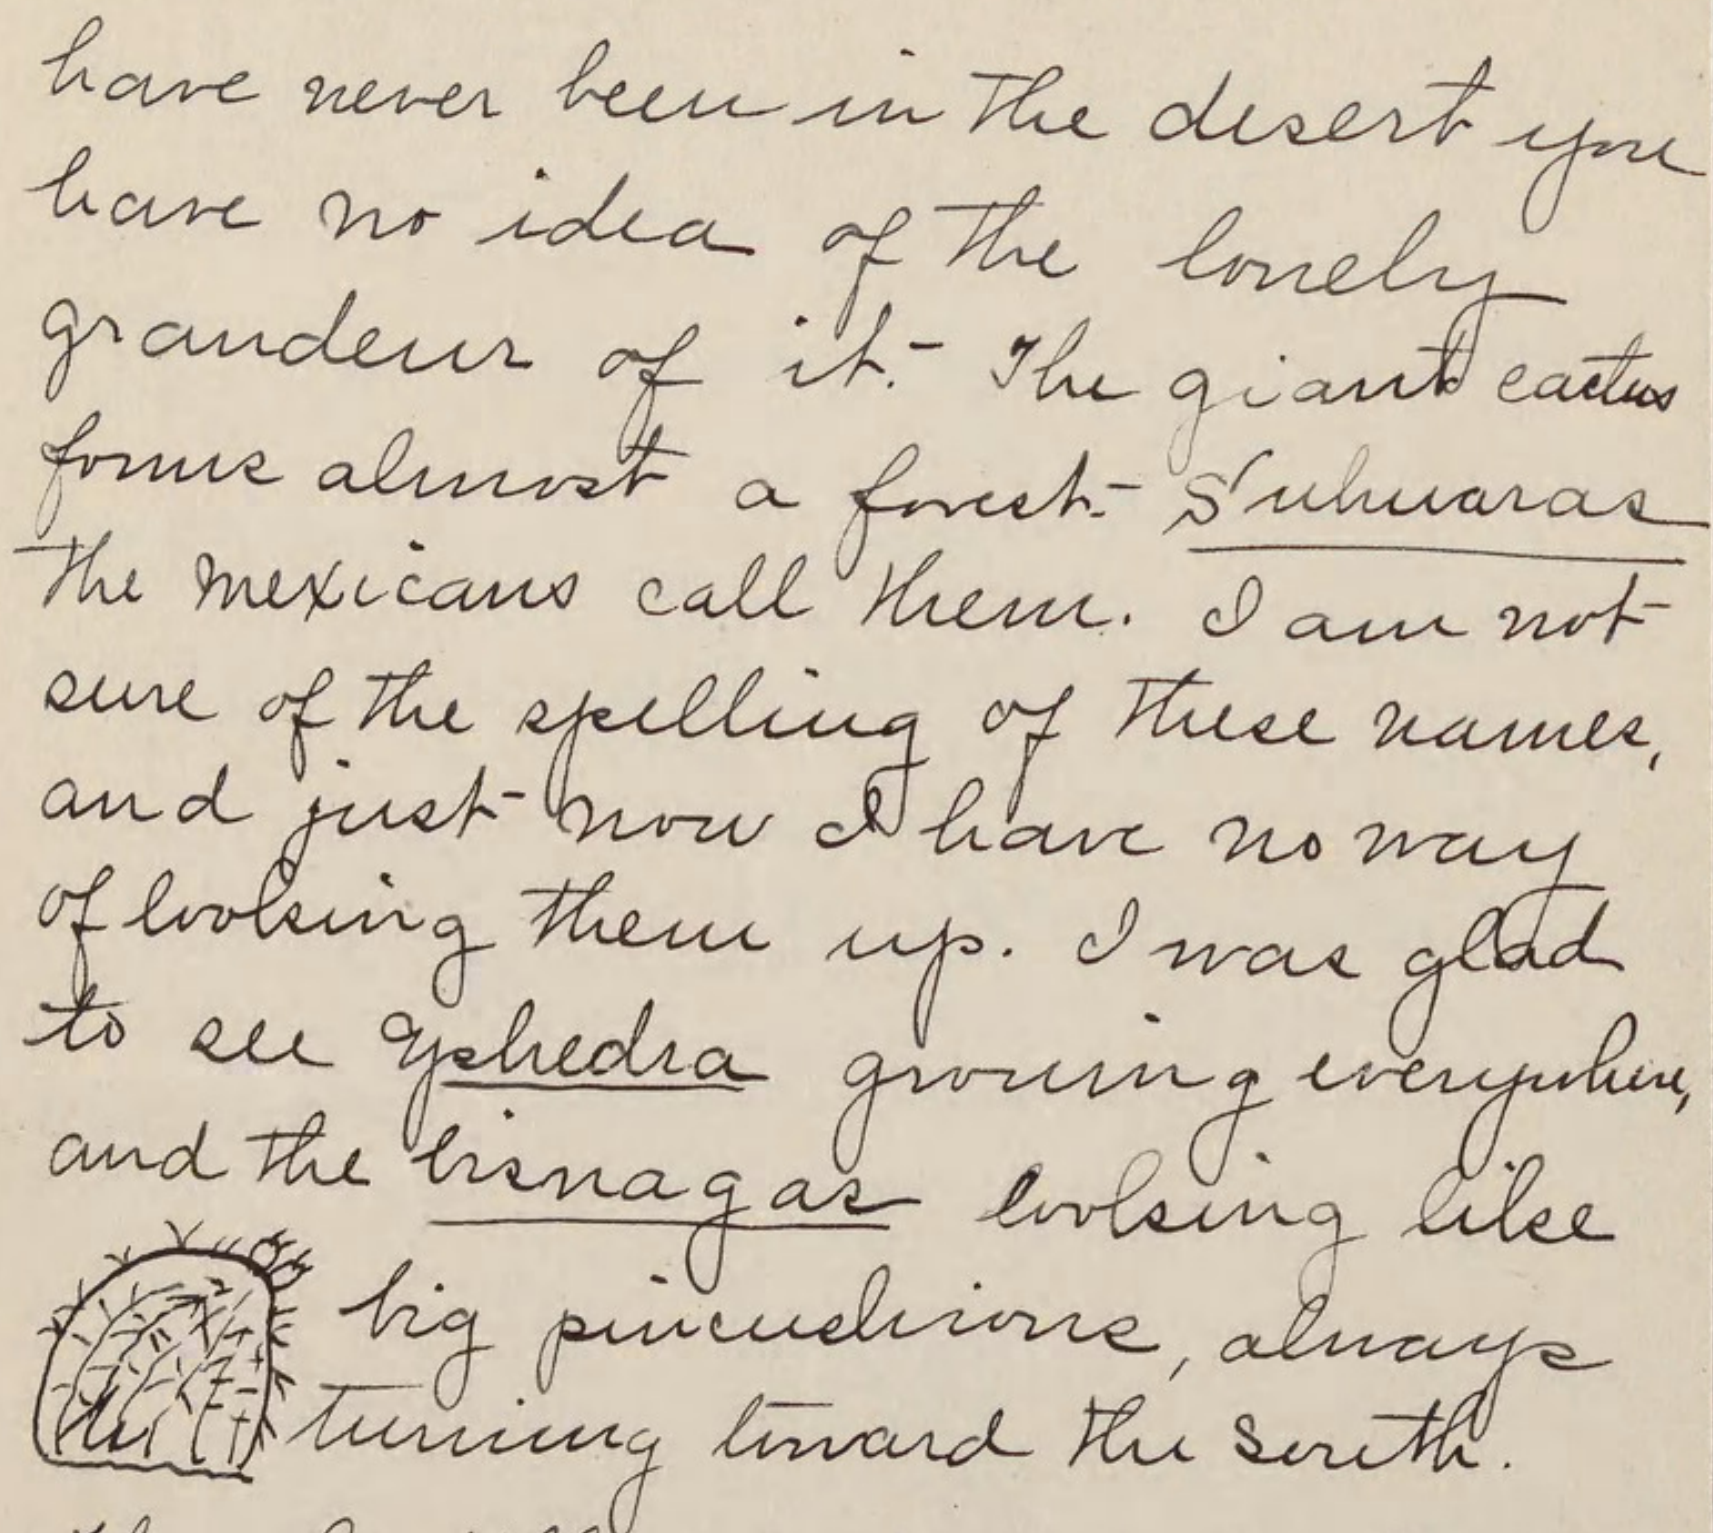 have never been in the desert you
have no idea of the lonely
grandeur of it.- The giant cactus
forms almost a forest.- Suhuaras
the mexicans call them. I am not
sure of the spelling of these names,
and just now I have no way
of looking them up. I was glad
to see Ephedra growing everywhere,
and the bisnagas looking like
big pincushions, always
turning toward the south.